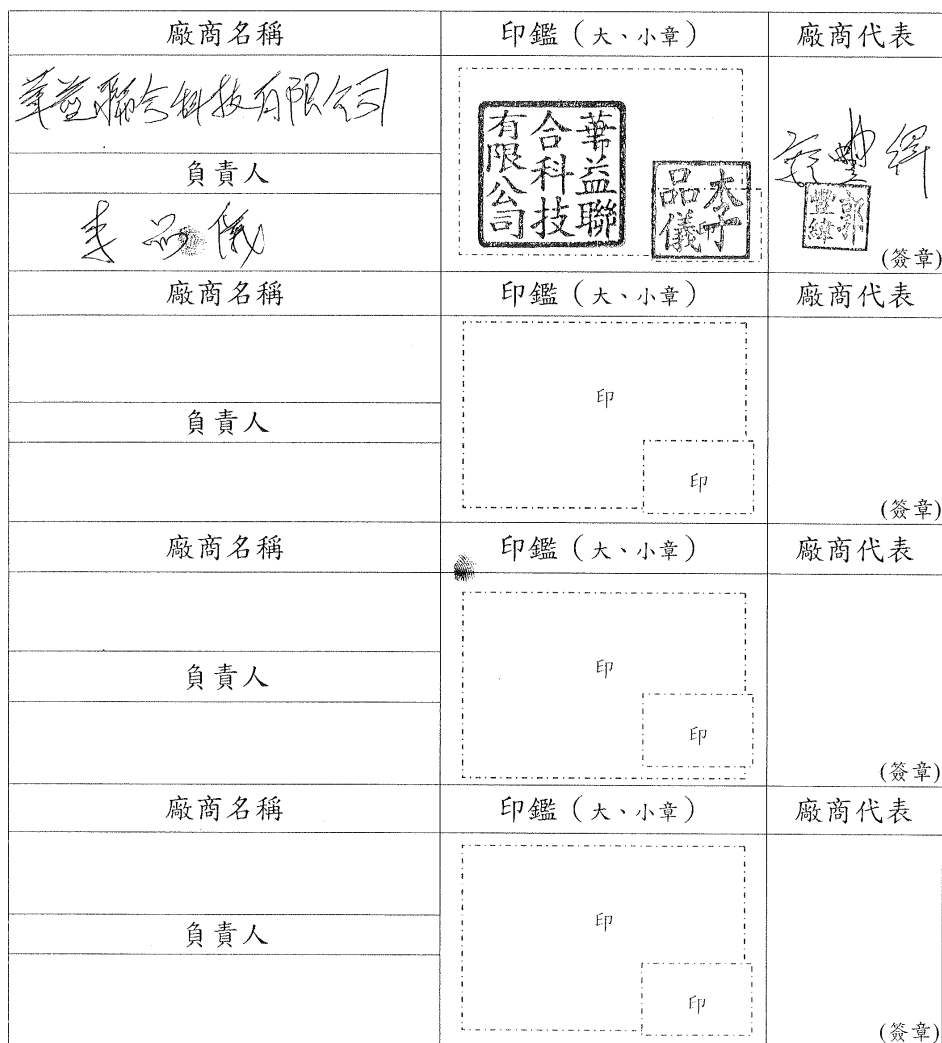 廠商名稱 印鑑（大、小章） 廠商代表
華益聯合科技有限公司
華益聯合科技有限公司
李品儀
郭豐緯
郭豐緯
負責人
李品儀
(簽章)
廠商名稱 印鑑（大、小章） 廠商代表
印
負責人
印
(簽章)
廠商名稱 印鑑（大、小章） 廠商代表
印
負責人
印
(簽章)
廠商名稱 印鑑（大、小章） 廠商代表
印
負責人
印
(簽章)